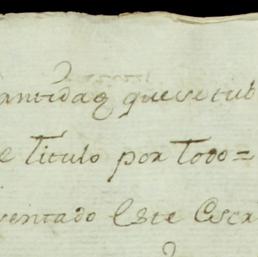 antidaq que se tub
e Titulo por Todo=
sentado Este Escr